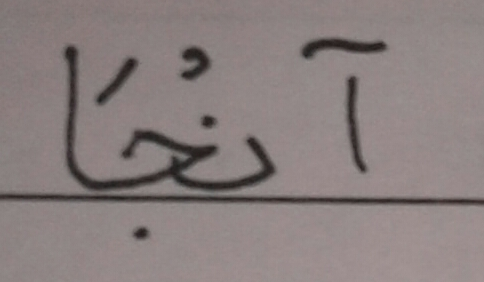 آنُجَا